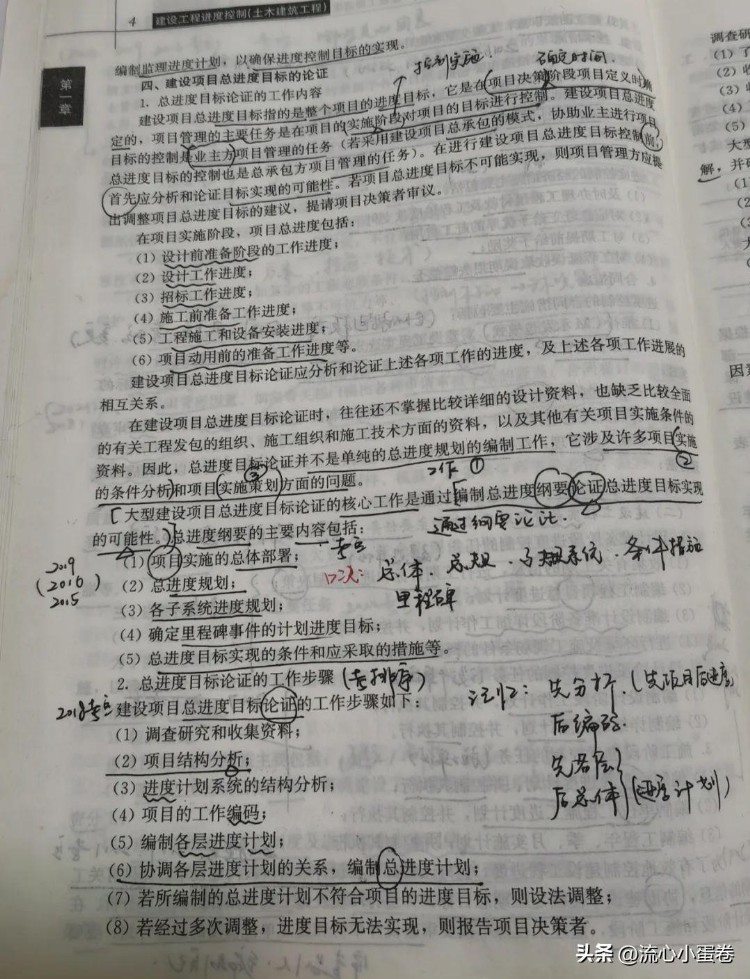 4 建设工程进度控制(土木建筑工程)
第一章
编制监理进度计划，以确保进度控制目标的实现。
四、建设项目总进度目标的论证
控制实施
确定时间.
1. 总进度目标论证的工作内容
建设项目总进度目标指的是整个项目的进度目标，它是在项目决策阶段项目定义时确
定的，项目管理的主要任务是在项目的实施阶段对项目的目标进行控制。建设项目总进度
目标的控制是业主方项目管理的任务（若采用建设项目总承包的模式，协助业主进行项目
总进度目标的控制也是总承包方项目管理的任务）。在进行建设项目总进度目标控制前，
首先应分析和论证目标实现的可能性。若项目总进度目标不可能实现，则项目管理方应提
出调整项目总进度目标的建议，提请项目决策者审议。
在项目实施阶段，项目总进度包括：
（1）设计前准备阶段的工作进度；
（2）设计工作进度；
（3）招标工作进度；
（4）施工前准备工作进度；
（5）工程施工和设备安装进度；
（6）项目动用前的准备工作进度等。
建设项目总进度目标论证应分析和论证上述各项工作的进度，及上述各项工作进展的
相互关系。
在建设项目总进度目标论证时，往往还不掌握比较详细的设计资料，也缺乏比较全面
的有关工程发包的组织、施工组织和施工技术方面的资料，以及其他有关项目实施条件的
资料。因此，总进度目标论证并不是单纯的总进度规划的编制工作，它涉及许多项目实施
工作 ① ②
③
的条件分析和项目实施策划方面的问题。
大型建设项目总进度目标论证的核心工作是通过编制总进度纲要论证总进度目标实现
的可能性。总进度纲要的主要内容包括：
通过纲要论证.
2019
(2016
2015
（1）项目实施的总体部署；
（2）总进度规划；
口决: 总体、总规、子规系统、条件措施
里程碑
（3）各子系统进度规划；
（4）确定里程碑事件的计划进度目标；
（5）总进度目标实现的条件和应采取的措施等。
2. 总进度目标论证的工作步骤
(考排序)
2018考
建设项目总进度目标论证的工作步骤如下：
注记: 先分析.(先项目后进度)
后编码
先各层
后总体 (进度计划)
（1）调查研究和收集资料；
（2）项目结构分析；
（3）进度计划系统的结构分析；
（4）项目的工作编码；
（5）编制各层进度计划；
（6）协调各层进度计划的关系，编制总进度计划；
（7）若所编制的总进度计划不符合项目的进度目标，则设法调整；
（8）若经过多次调整，进度目标无法实现，则报告项目决策者。
头条 @流心小蛋卷